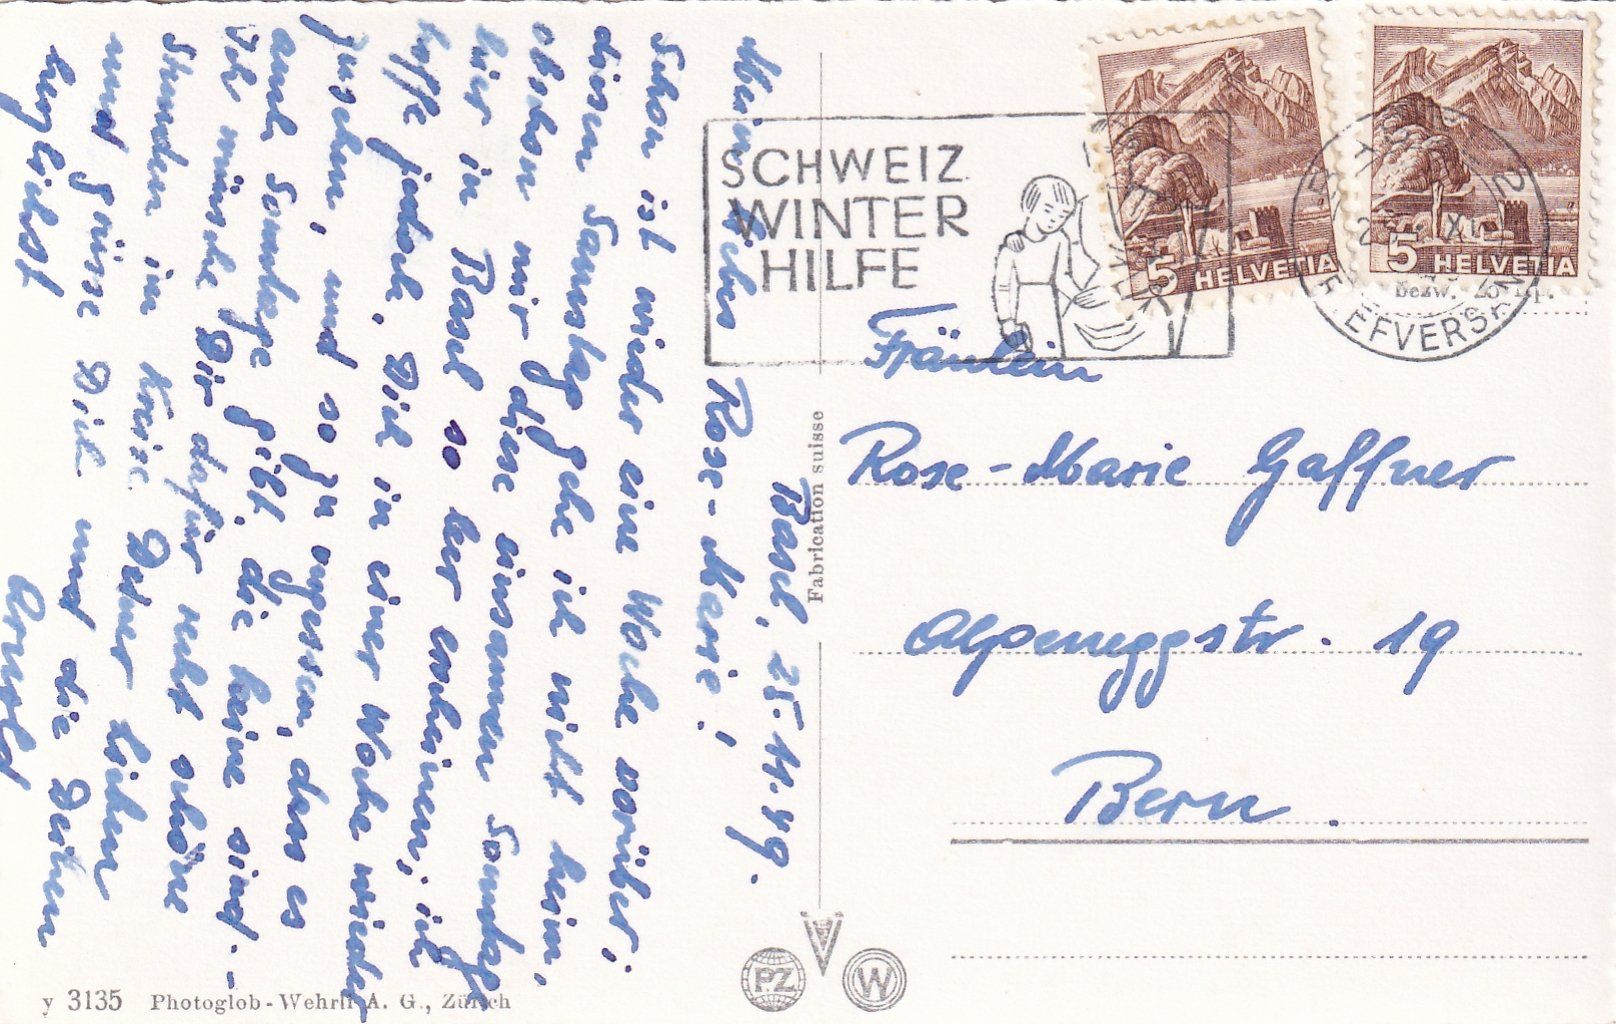 Basel, 25.11.49.
Mein liebes Rose-Marie!
Schon ist wieder eine Woche vorüber;
diesen Samstag gehe ich nicht heim,
obschon mir diese einsamen Sonntage
hier in Basel so leer erscheinen; ich
hoffe jedoch, Dich in einer Woche wieder
zu sehen, und so zu vergessen, dass es
auch Sonntage gibt, die keine sind. -
Ich wünsche Dir dafür recht schöne
Stunden im Kreise Deiner Lieben
und grüsse Dich und die Deinen
herzlichst
Arnold
SCHWEIZ.
WINTER
HILFE
5 HELVETIA
5 HELVETIA
bezw. 20 Rp.
BRIEFVERSAND
Fräulein
Rose-Marie Gaffner
Alpeneggstr. 19
Bern.
Fabrication suisse
PZ
W
y 3135 Photoglob-Wehrli A. G., Zürich